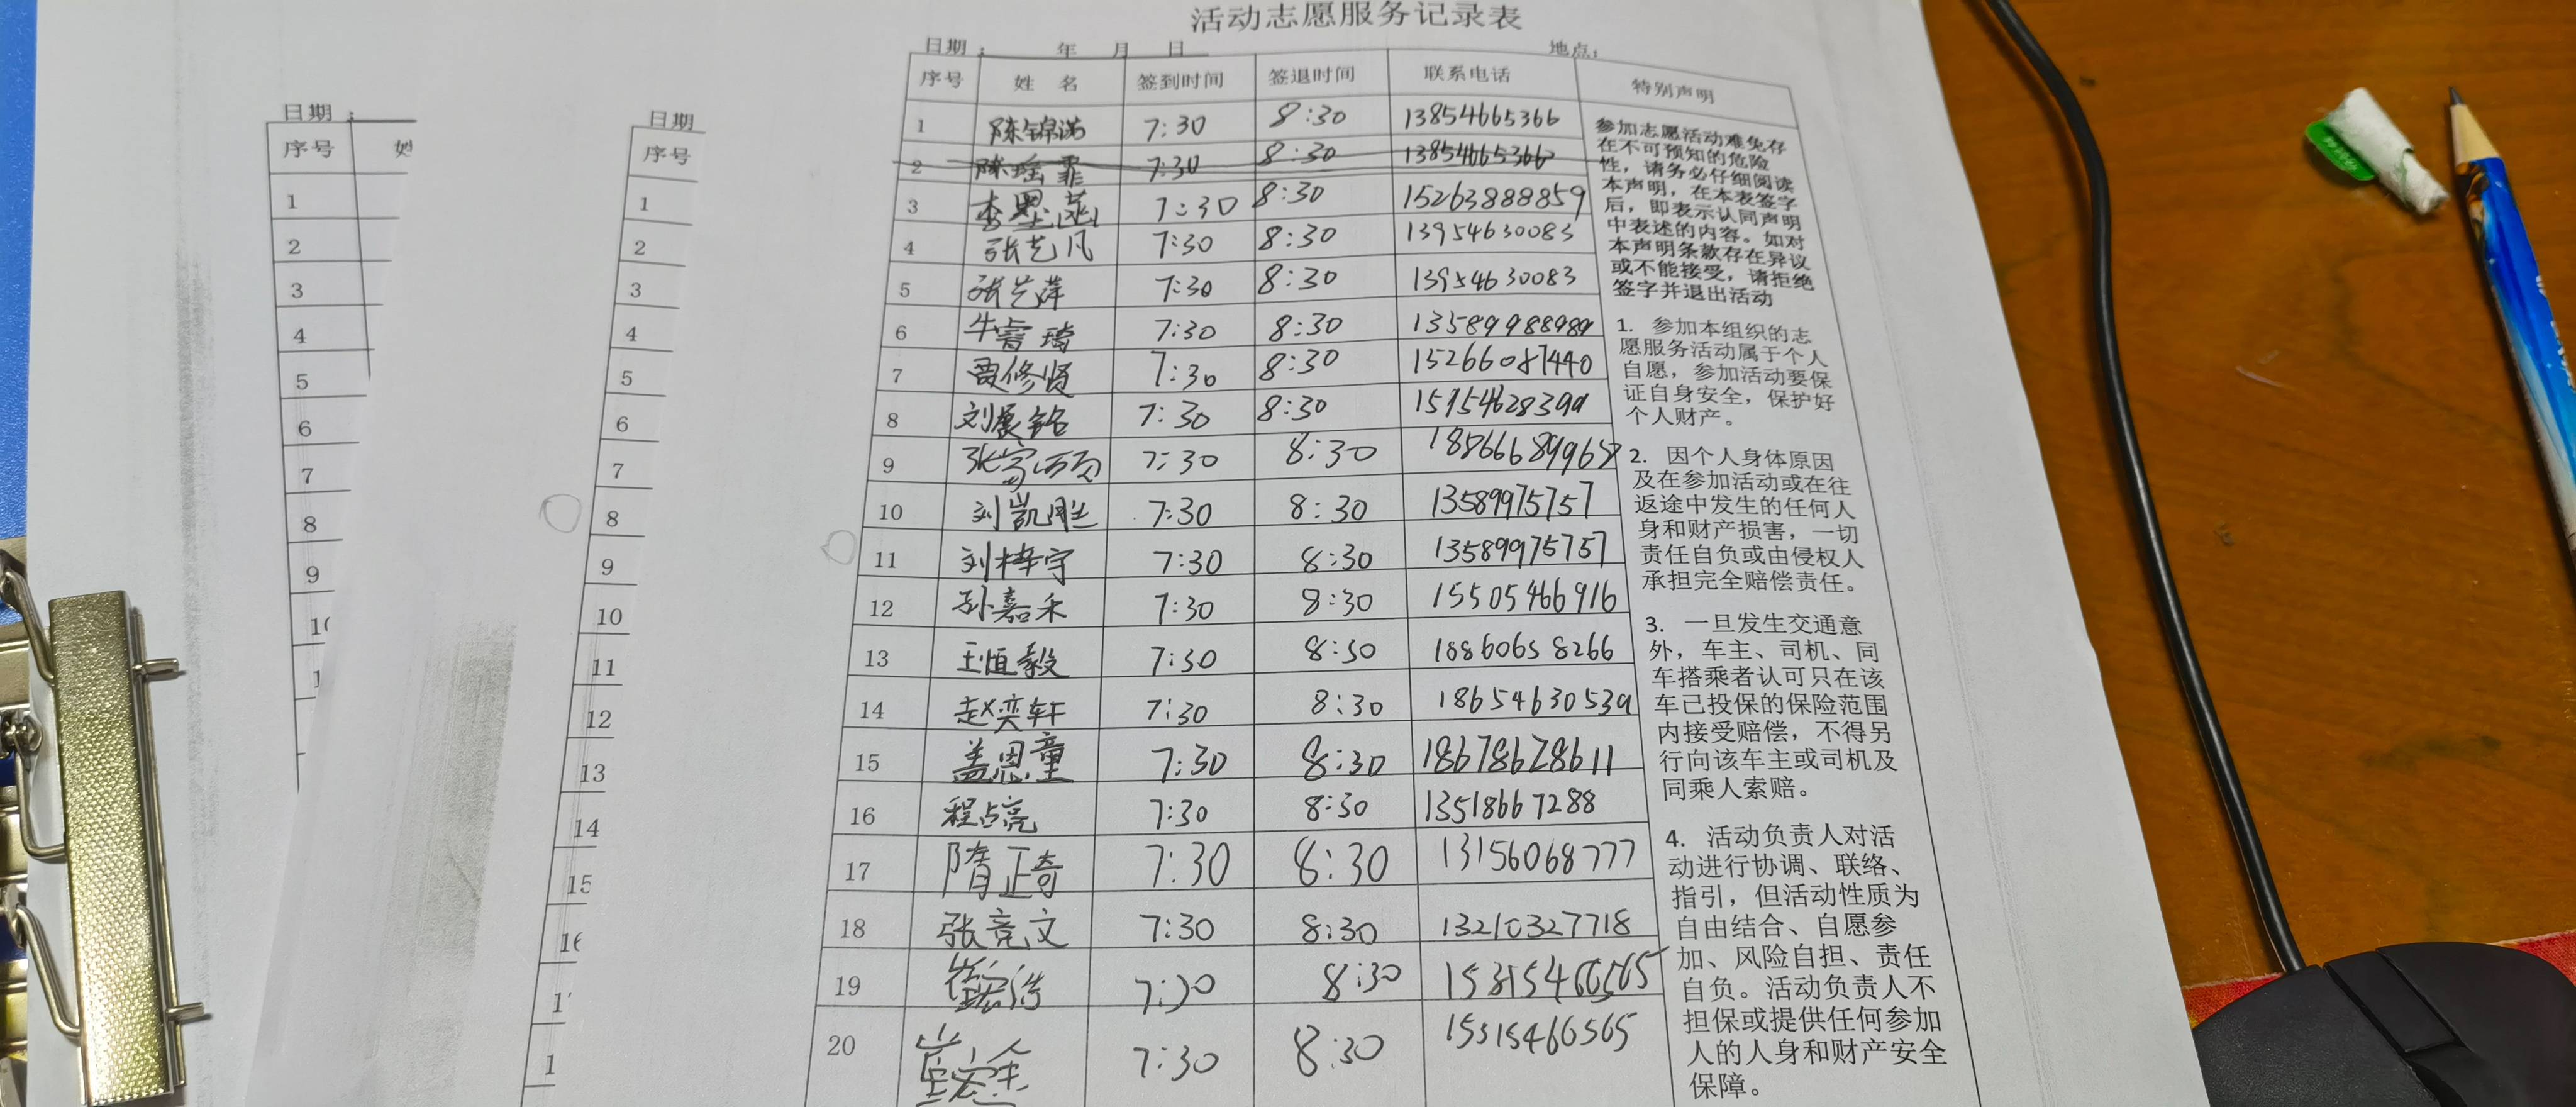 活动志愿服务记录表
日期： 年 月 日 地点：
序号 姓 名 签到时间 签退时间 联系电话 特别声明
1 陈锦诺 7:30 8:30 13854665366
2 陈瑶霏 7:30 8:30 13854665366
3 李墨菡 7:30 8:30 15263888859
4 张艺凡 7:30 8:30 13954630083
5 张艺萍 7:30 8:30 13954630083
6 牛睿琦 7:30 8:30 13589988989
7 贾修贤 7:30 8:30 15266087440
8 刘展铭 7:30 8:30 15954628399
9 7:30 8:30 18866689968
10 刘凯 7:30 8:30 13589975757
11 刘梓宇 7:30 8:30 13589975757
12 孙嘉禾 7:30 8:30 15505466916
13 王恒毅 7:30 8:30 18860658266
14 赵奕轩 7:30 8:30 18654630539
15 盖恩童 7:30 8:30 18678628611
16 程占亮 7:30 8:30 13518667288
17 隋正奇 7:30 8:30 13156068777
18 张竞文 7:30 8:30 13210327718
19 崔宏浩 7:30 8:30 15315466565
20 7:30 8:30 15315466565
参加志愿活动难免存
在不可预知的危险
性，请务必仔细阅读
本声明，在本表签字
后，即表示认同声明
中表述的内容。如对
本声明条款存在异议
或不能接受，请拒绝
签字并退出活动
1. 参加本组织的志
愿服务活动属于个人
自愿，参加活动要保
证自身安全，保护好
个人财产。
2. 因个人身体原因
及在参加活动或在往
返途中发生的任何人
身和财产损害，一切
责任自负或由侵权人
承担完全赔偿责任。
3. 一旦发生交通意
外，车主、司机、同
车搭乘者认可只在该
车已投保的保险范围
内接受赔偿，不得另
行向该车主或司机及
同乘人索赔。
4. 活动负责人对活
动进行协调、联络、
指引，但活动性质为
自由结合、自愿参
加、风险自担、责任
自负。活动负责人不
担保或提供任何参加
人的人身和财产安全
保障。
日期：
序号 姓
1
2
3
4
5
6
7
8
9
日期
序号
1
2
3
4
5
6
7
8
9
10
11
12
13
14
15